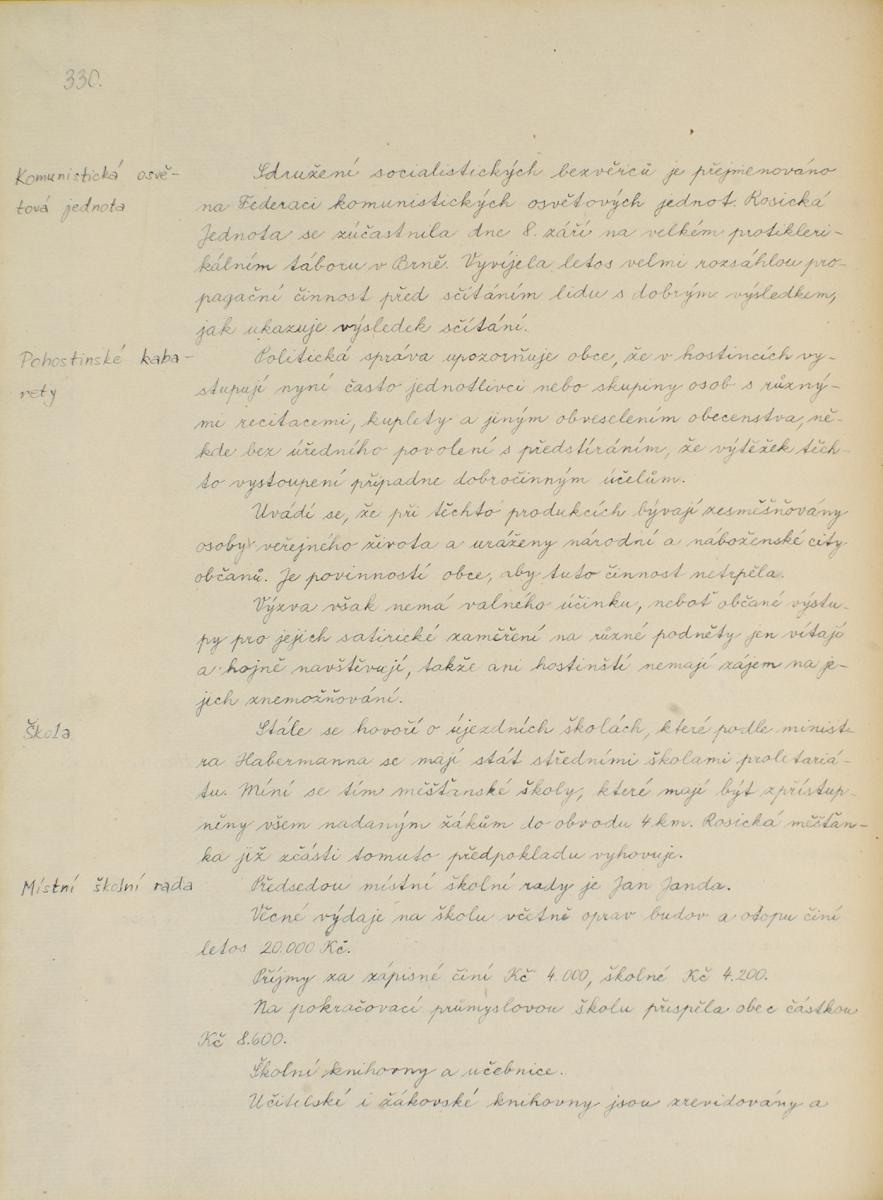 330.
Komunistická osvě-
tová jednota
Sdružení socialistických bezvěrců je přejmenováno
na Federaci komunistických osvětových jednot. Rosická
Jednota se zúčastnila dne 8. září na velkém protikleri-
kálním táboru v Brně. Vyvíjela letos velmi rozsáhlou pro-
pagační činnost před sčítáním lidu s dobrým výsledkem,
jak ukazuje výsledek sčítání.
Pohostinské kaba-
rety
Politická správa upozorňuje obce, že v hostincích vy-
stupují nyní často jednotlivci nebo skupiny osob s různý-
mi recitacemi, kuplety a jiným obveselením obecenstva, ně-
kde bez úředního povolení s předstíráním, že výtěžek těch-
to vystoupení připadne dobročinným účelům.
Uvádí se, že při těchto produkcích bývají zesměšňovány
osoby veřejného života a uráženy národní a náboženské city
občanů. Je povinností obce, aby tuto činnost netrpěla.
Výzva však nemá valného účinku, neboť občané výstu-
py pro jejich satirické zaměření na různé podněty jen vítají
a hojně navštěvují, takže ani hostinští nemají zájem na je-
jich znemožňování.
Škola
Stále se hovoří o újezdních školách, které podle minist-
ra Habermanna se mají stát středními školami proletariá-
tu. Míní se tím měšťanské školy, které mají být zpřístup-
něny všem nadaným žákům do obvodu 4 km. Rosická měšťan-
ka již zčásti tomuto předpokladu vyhovuje.
Místní školní rada
Předsedou místní školní rady je Jan Janda.
Věcné výdaje na školu včetně oprav budov a otopu činí
letos 20.000 Kč.
Příjmy za zápisné činí Kč 4.000, školné Kč 4.200.
Na pokračovací průmyslovou školu přispěla obec částkou
Kč 8.600.
Školní knihovny a učebnice.
Učitelské i žákovské knihovny jsou zrevidovány a